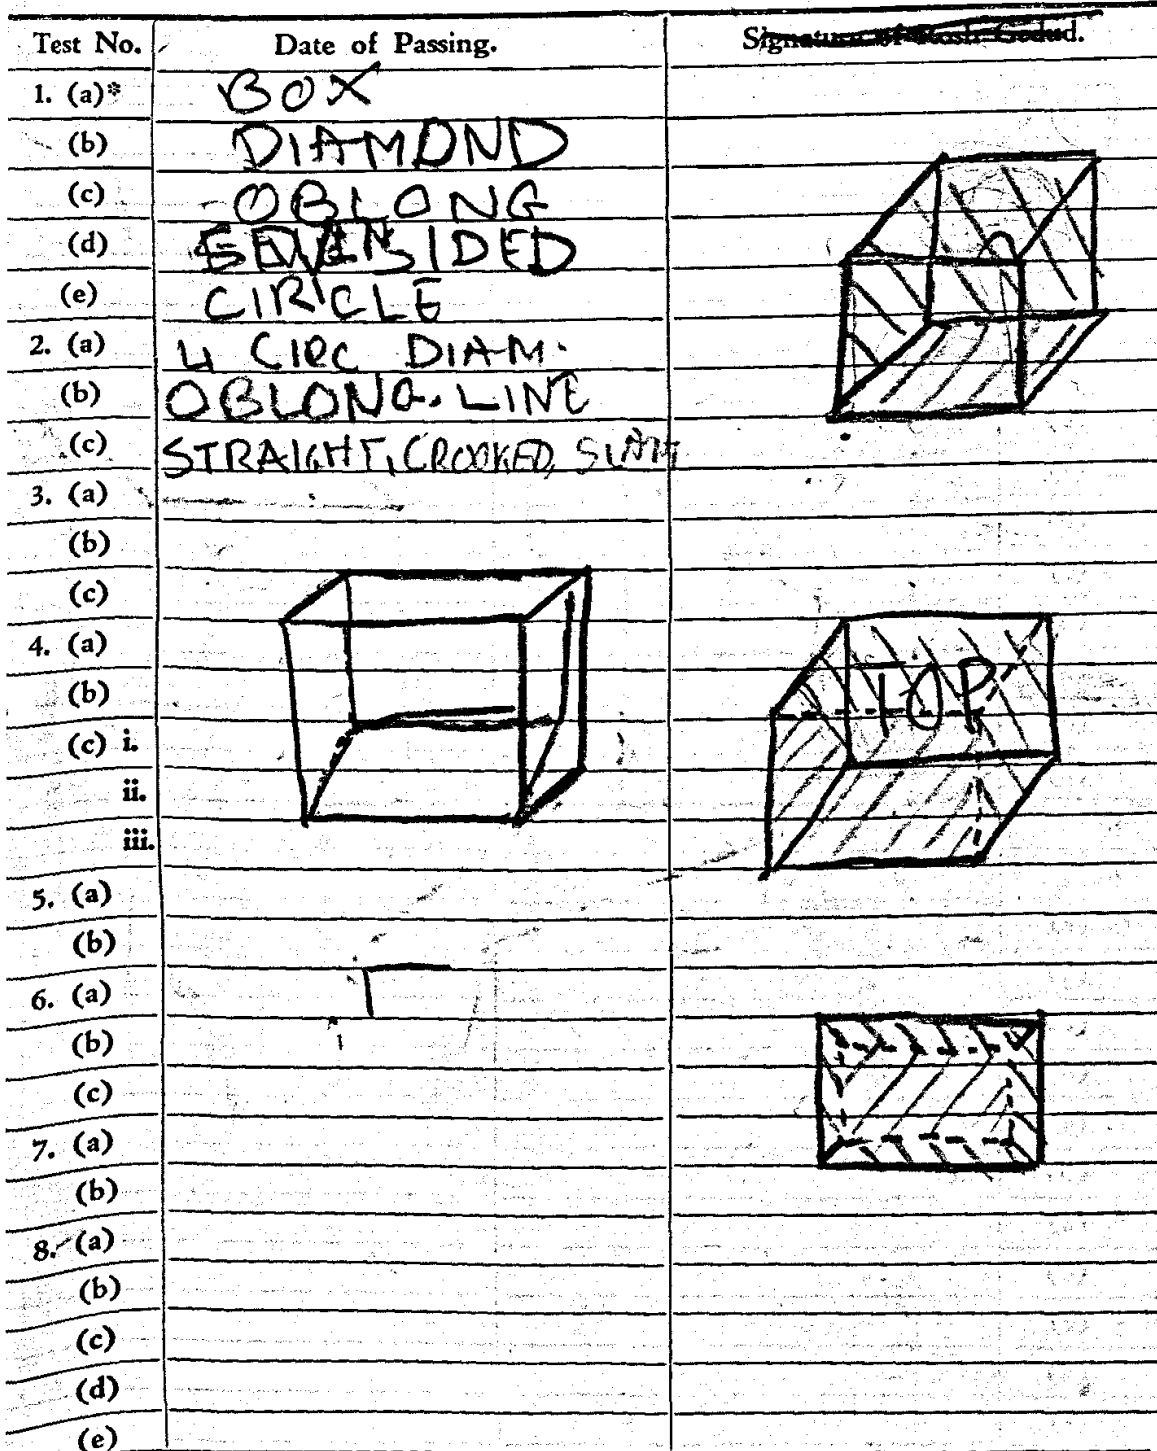 Test No. Date of Passing. Signature of Rosh Gedud.
1. (a)* BOX
(b) DIAMOND
(c) OBLONG
(d) SIDED
(e) CIRCLE
2. (a) 4 CIRC DIAM.
(b) OBLONG. LINE
(c) STRAIGHT, CROOKED,
3. (a)
(b)
(c)
4. (a)
(b) TOP
(c) i.
ii.
iii.
5. (a)
(b)
6. (a)
(b)
(c)
7. (a)
(b)
8. (a)
(b)
(c)
(d)
(e)